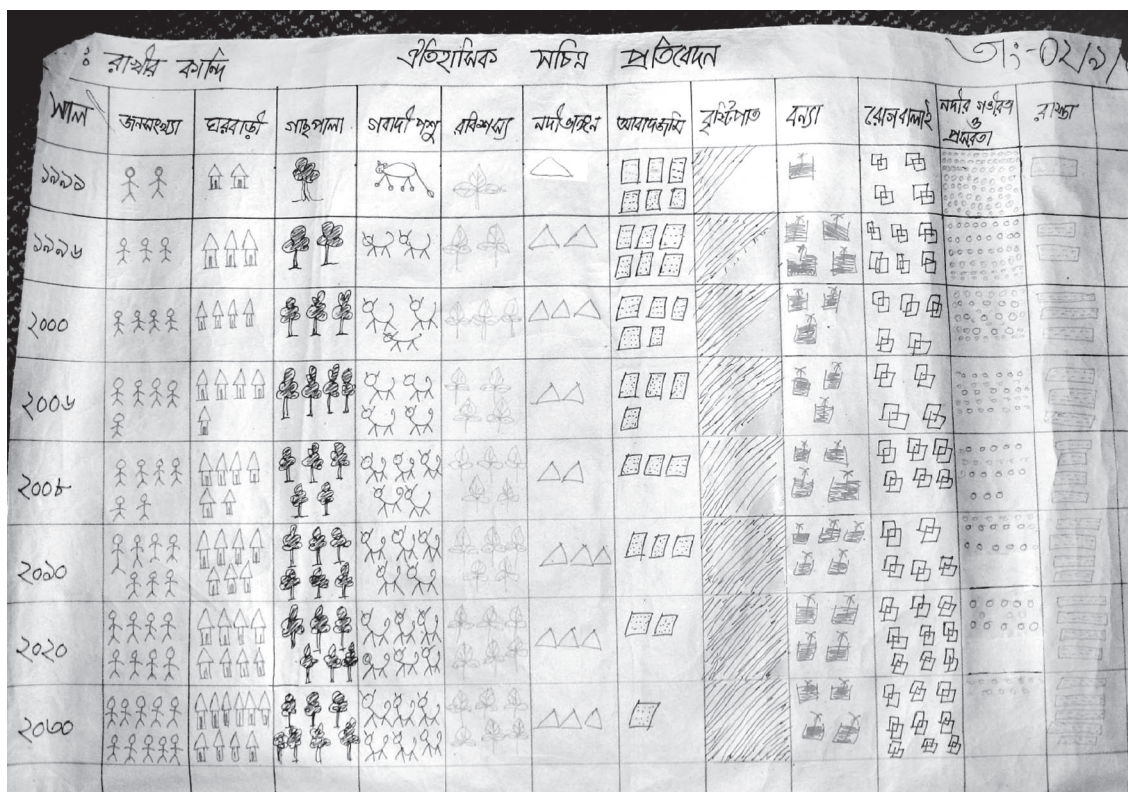 : রাখীর কান্দি ঐতিহাসিক সচিত্র প্রতিবেদন তাং-০২/৯/
সাল জনসংখ্যা ঘরবাড়ী গাছপালা গবাদীপশু রবিশস্য নদীভাঙ্গন আবাদজমি বৃষ্টিপাত বন্যা রোগবালাই নদীর গভীরত্ব ও প্রসরতা রাস্তা
১৯৯১
১৯৯৬
২০০০
২০০৬
২০০৮
২০১০
২০২০
২০৩০